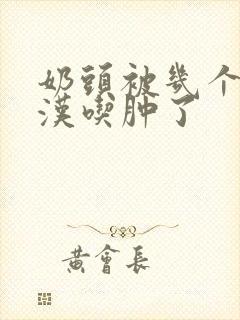 奶頭被幾个
漢喫肿了
黄會長